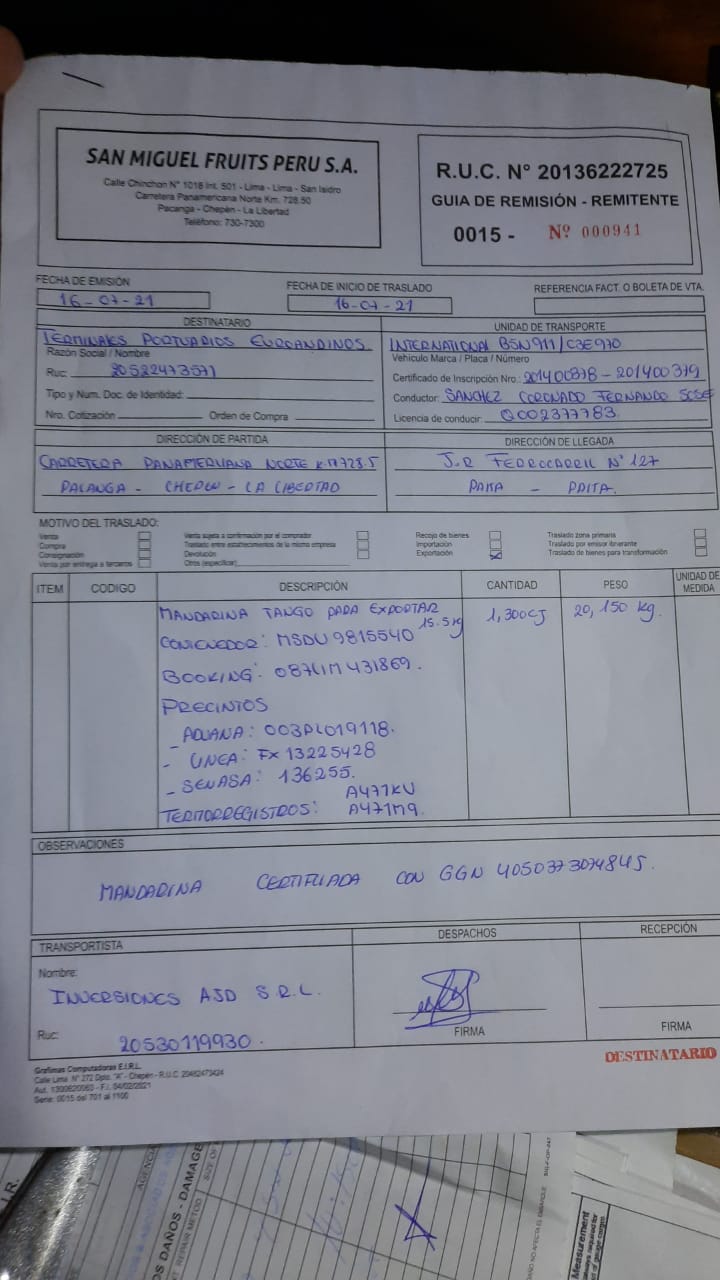 SAN MIGUEL FRUITS PERU S.A.
Calle Chinchon N° 1018 Int. 501 - Lima - Lima - San Isidro
Carretera Panamericana Norte Km. 728.50
Pacanga - Chepén - La Libertad
Teléfono: 730-7300
R.U.C. N° 20136222725
GUIA DE REMISIÓN - REMITENTE
0015 - Nº 000941
FECHA DE EMISIÓN
16-07-21
FECHA DE INICIO DE TRASLADO
16-07-21
REFERENCIA FACT. O BOLETA DE VTA.
DESTINATARIO
TERMINALES PORTUARIOS EUROANDINOS
Razón Social / Nombre
Ruc: 20522473571
Tipo y Num. Doc. de Identidad:
Nro. Cotización Orden de Compra
UNIDAD DE TRANSPORTE
INTERNATIONAL B5N911/C3E970
Vehículo Marca / Placa / Número
Certificado de Inscripción Nro. 201400378-201400379
Conductor: SANCHEZ CORONADO FERNANDO JOSE
Licencia de conducir: Q002377783
DIRECCIÓN DE PARTIDA
CARRETERA PANAMERICANA NORTE K.M728.5
PACANGA - CHEPEN - LA LIBERTAD
DIRECCIÓN DE LLEGADA
J.R FERROCARRIL N° 127
PAITA - PAITA.
MOTIVO DEL TRASLADO:
Venta
Compra
Consignación
Venta por entrega a terceros
Venta sujeta a confirmación por el comprador
Traslado entre establecimientos de la misma empresa
Devolución
Otros (especificar)
Recojo de bienes
Importación
Exportación
Traslado zona primaria
Traslado por emisor itinerante
Traslado de bienes para transformación
ITEM CODIGO DESCRIPCIÓN CANTIDAD PESO UNIDAD DE MEDIDA
MANDARINA TANGO PARA EXPORTAR 1,300CJ 20,150 kg.
15.5kg
CONTENEDOR: MSDU 9815540
BOOKING: 087LIM431869.
PRECINTOS
- ADUANA: 003PL019118.
- LINEA: FX13225428
- SENASA: 136255.
A471KU
TERMORREGISTROS: A471M9.
OBSERVACIONES
MANDARINA CERTIFICADA CON GGN 4050373074845.
TRANSPORTISTA
Nombre:
INVERSIONES AJD S.R.L.
Ruc: 20530119930.
DESPACHOS
FIRMA
RECEPCIÓN
FIRMA
DESTINATARIO
Grafimas Computadoras E.I.R.L.
Calle Lima N° 272 Dpto. "A" - Chepén - R.U.C. 20482473424
Serie: 0015 del 701 al 1100
OS DAÑOS - DAMAGE
Measurement